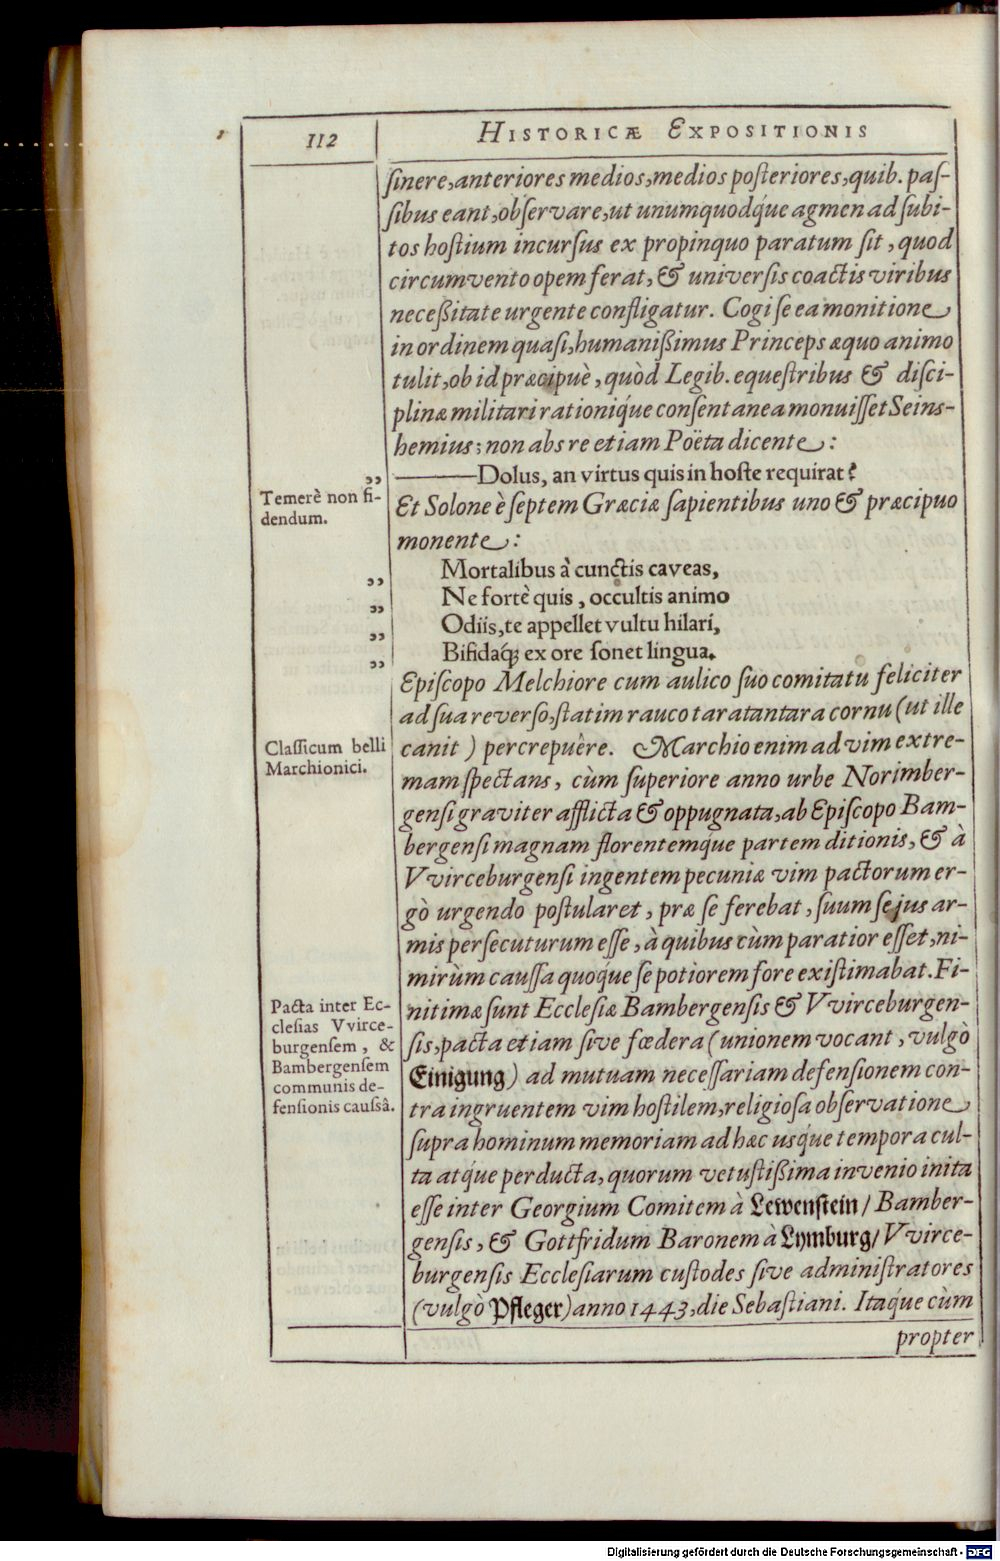 112
HISTORICÆ EXPOSITIONIS
ſinere, anteriores medios, medios poſteriores, quib. paſ-
ſibus eant, obſervare, ut unumquodq́ue agmen ad ſubi-
tos hoſtium incurſus ex propinquo paratum ſit, quod
circumvento opem ferat, & univerſis coactis viribus
neceßitate urgente confligatur. Cogi ſe ea monitione
in ordinem quaſi, humanißimus Princeps æquo animo
tulit, ob id præcipuè, quòd Legib. equeſtribus & diſci-
plinæ militari rationiq́ue conſentanea monuiſſet Seins-
hemius; non abs re etiam Poëta dicente:
,, ——Dolus, an virtus quis in hoſte requirat?
Temerè non fi-
dendum.
Et Solone è ſeptem Græciæ ſapientibus uno & præcipuo
monente:
,, Mortalibus à cunctis caveas,
,, Ne fortè quis, occultis animo
,, Odiis, te appellet vultu hilari,
,, Bifidaq́; ex ore ſonet lingua.
Epiſcopo Melchiore cum aulico ſuo comitatu feliciter
ad ſua reverſo, ſtatim rauco taratantara cornu (ut ille
Claſſicum belli
Marchionici.
canit) percrepuêre. Marchio enim ad vim extre-
mam ſpectans, cùm ſuperiore anno urbe Norimber-
genſi graviter afflicta & oppugnata, ab Epiſcopo Bam-
bergenſi magnam florentemq́ue partem ditionis, & à
Vvirceburgenſi ingentem pecuniæ vim pactorum er-
gò urgendo poſtularet, præ ſe ferebat, ſuum ſe jus ar-
mis perſecuturum eſſe, à quibus cùm paratior eſſet, ni-
mirùm cauſſa quoq́ue ſe potiorem fore exiſtimabat. Fi-
Pacta inter Ec-
cleſias Vvirce-
burgenſem, &
Bambergenſem
communis de-
fenſionis cauſsâ.
nitimæ ſunt Eccleſiæ Bambergenſis & Vvirceburgen-
ſis, pacta etiam ſive fœdera (unionem vocant, vulgò
Einigung) ad mutuam neceſſariam defenſionem con-
tra ingruentem vim hoſtilem, religioſa obſervatione
ſupra hominum memoriam ad hæc usq́ue tempora cul-
ta atq́ue perducta, quorum vetuſtißima invenio inita
eſſe inter Georgium Comitem à Lewenſtein / Bamber-
genſis, & Gottfridum Baronem à Lymburg / Vvirce-
burgenſis Eccleſiarum cuſtodes ſive adminiſtratores
(vulgò Pfleger) anno 1443, die Sebaſtiani. Itaq́ue cùm
propter
Digitalisierung gefördert durch die Deutsche Forschungsgemeinschaft - DFG